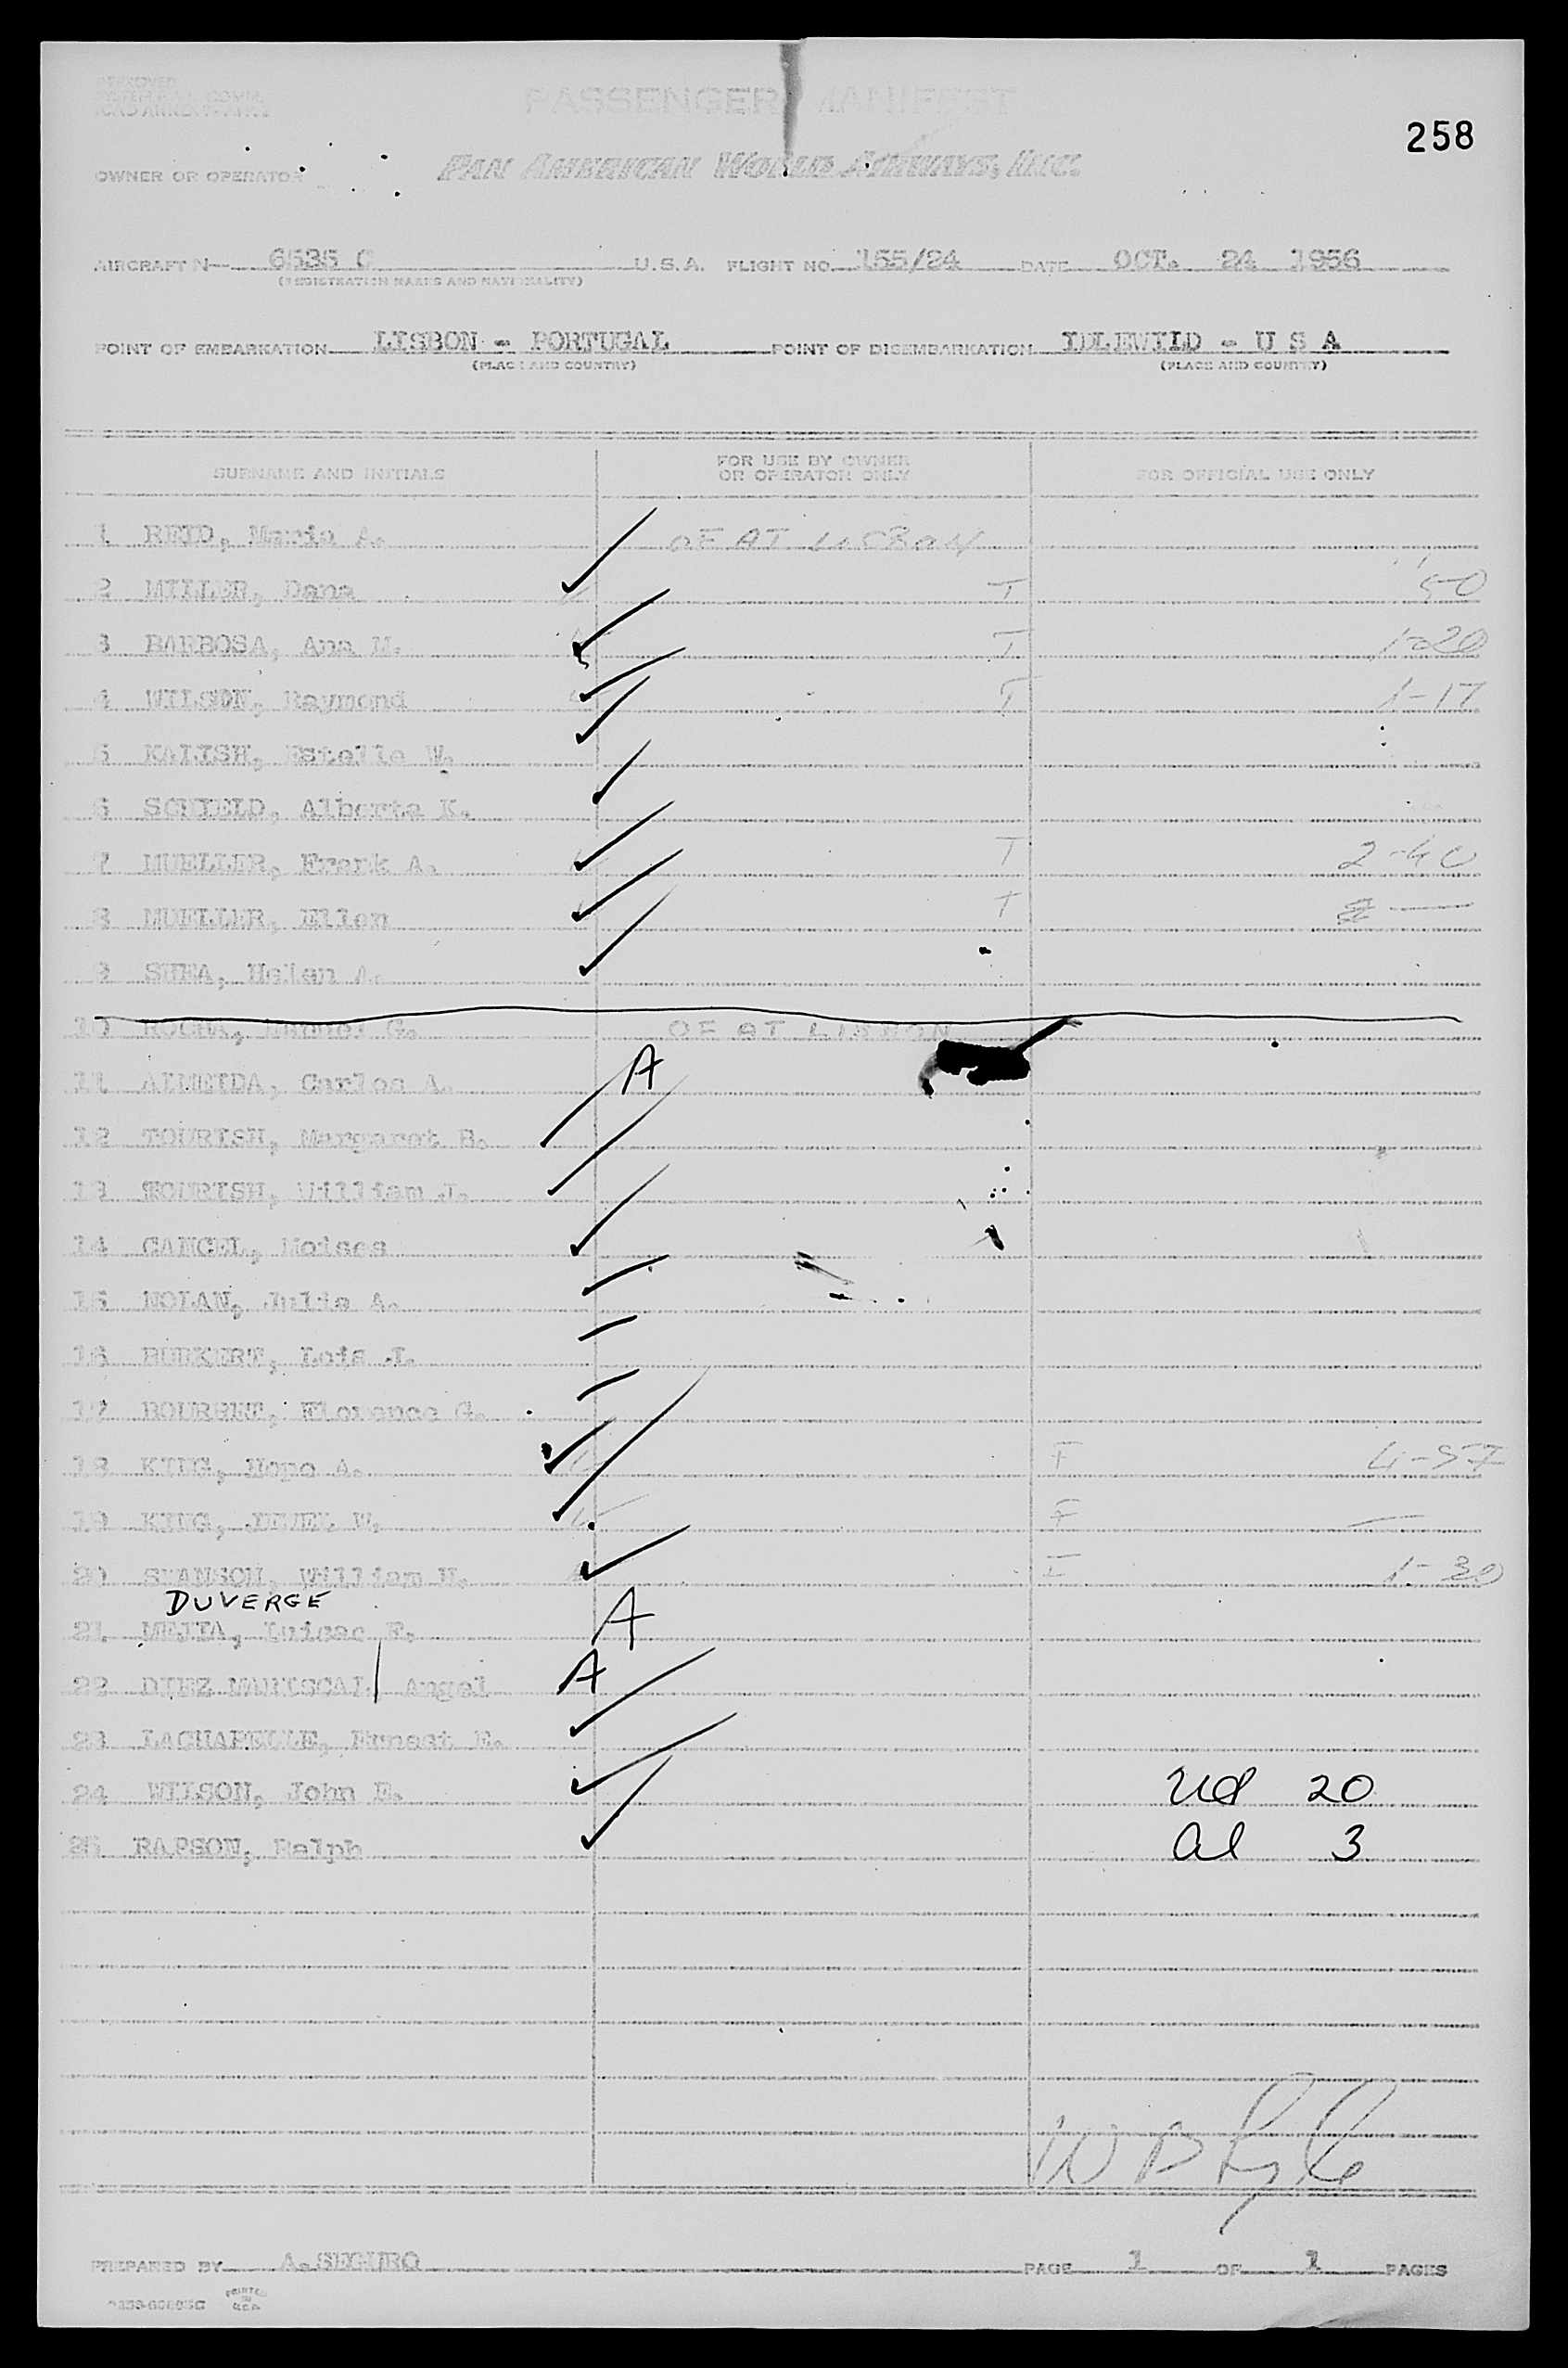 PASSENGER MANIFEST
258
OWNER OR OPERATOR PAN AMERICAN WORLD AIRWAYS, INC.
AIRCRAFT N— 6535 C U.S.A. FLIGHT NO. 155/24 DATE OCT. 24 1956
(REGISTRATION MARKS AND NATIONALITY)
POINT OF EMBARKATION LISBON - PORTUGAL POINT OF DISEMBARKATION IDLEWILD - U S A
(PLACE AND COUNTRY) (PLACE AND COUNTRY)
SURNAME AND INITIALS FOR USE BY OWNER OR OPERATOR ONLY FOR OFFICIAL USE ONLY
1 REID, Maria A. OF AT LISBON
2 MILLER, Dana T 50
3 BARBOSA, Ana M. T 1-20
4 WILSON, Raymond T 1-17
5 KALISH, Estelle W.
6 SCHIELD, Alberta K.
7 MUELLER, Frank A. T 2-40
8 MUELLER, Ellen T —
9 SHEA, Helen A.
10 G. OF AT LISBON
11 ALMEIDA, Carlos A. A
12 TOURISH, Margaret B.
13 TOURISH, William J.
14 CANCEL, Moises
15 NOLAN, Julia A.
16 BURKERT, Lois J.
17 BOURRET, Florence G.
18 KING, Hope A. F 4-57
19 KING, JEWEL W. F —
20 SWANSON, William H. I 1-30
DUVERGE
21 MEJIA, F. A
22 DIEZ MARISCAL, Angel A
23 LACHAPELLE, Ernest E.
24 WILSON, John E. 20
25 RAPSON, Ralph al 3
PREPARED BY A. SEGURO PAGE 1 OF 1 PAGES
PRINTED
IN
U.S.A.